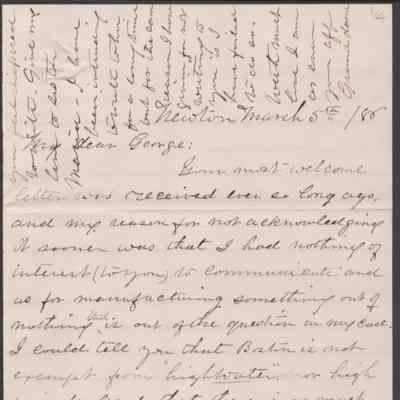 Newton March 5th /86
My dear George:
Your most welcome
letter was received ever so long ago,
and my reason for not acknowledging
it sooner was that I had nothing of
interest (to you) to communicate and
as for manufacturing something out of
nothing that is out of the question in my case.
I could tell you that Boston is not
exempt from "high water" nor high
write. Give me
love to sister
I have
been intending
to write to him
for a long time
but for the same
reason I have
given for not
writing to
you is I
have failed
to do so.
With much
love I am
as ever
your aff
Grandson